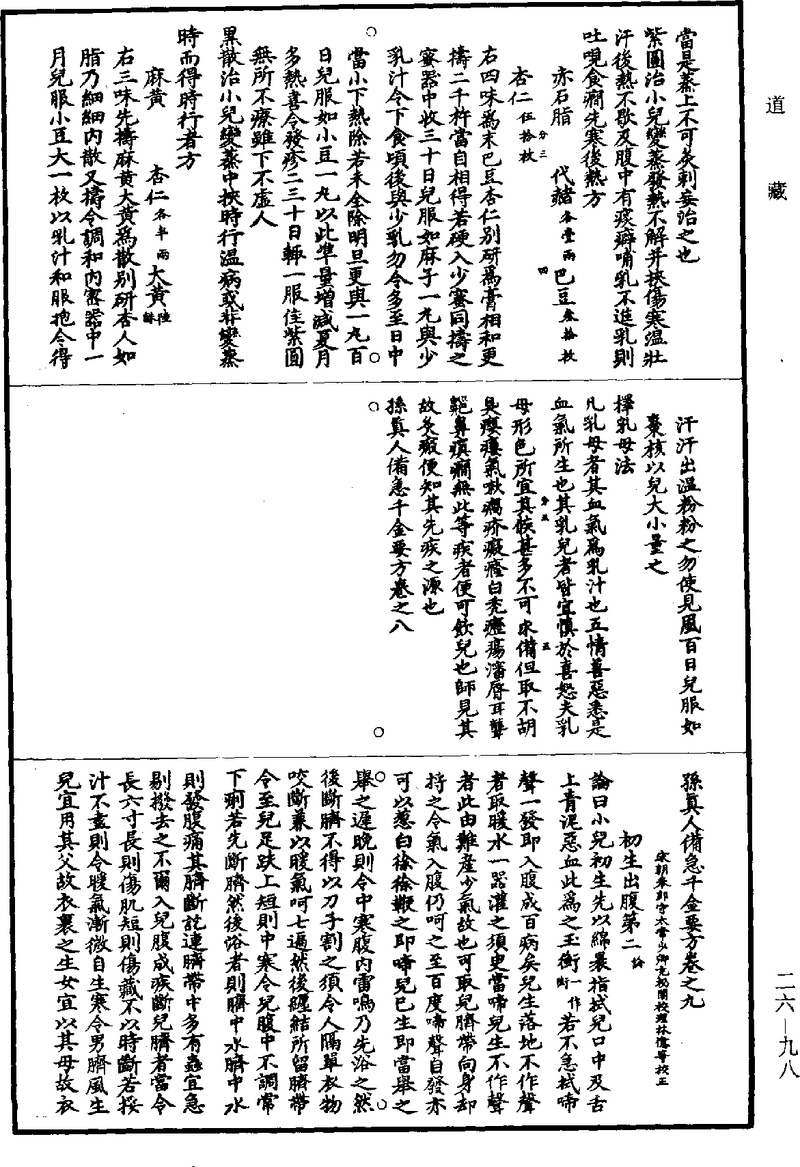 道藏
當是蒸上不可灸刺妄治之也
紫圓治小兒變蒸發熱不解并挾傷寒溫壯
汗後熱不歇及腹中有痰癖哺乳不進乳則
吐哯食癇先寒後熱方
赤石脂 代赭各壹兩 巴豆叁拾枚
杏仁伍拾枚
右四味爲末巴豆杏仁別研爲膏相和更
擣二千杵當自相得若硬入少蜜同擣之
蜜器中收三十日兒服如麻子一丸與少
乳汁令下食頃後與少乳勿令多至日中
當小下熱除若未全除明旦更與一丸百
日兒服如小豆一丸以此準量增減夏月
多熱喜令發疹二三十日輒一服佳紫圓
無所不療雖下不虛人
黑散治小兒變蒸中挾時行溫病或非變蒸
時而得時行者方
麻黃 杏仁各半兩 大黃陸銖
右三味先擣麻黃大黃爲散別研杏人如
脂乃細細內散又擣令調和內密器中一
月兒服小豆大一枚以乳汁和服抱令得
汗汗出溫粉粉之勿使見風百日兒服如
棗核以兒大小量之
擇乳母法
凡乳母者其血氣爲乳汁也五情善惡悉是
血氣所生也其乳兒者皆宜慎於喜怒夫乳
母形色所宜其候甚多不可求備但取不胡
臭癭瘻氣嗽瘑疥癡癃白禿癧瘍瀋唇耳聾
齆鼻癲癇無此等疾者便可飲兒也師見其
故灸瘢便知其先疾之源也
孫真人備急千金要方卷之八
孫真人備急千金要方卷之九
宋朝奉郎守太常少卿充秘閣校理林億等校正
初生出腹第二論
論曰小兒初生先以綿裹指拭兒口中及舌
上青泥惡血此爲之玉衡一作銜若不急拭啼
聲一發即入腹成百病矣兒生落地不作聲
者取暖水一器灌之須臾當啼兒生不作聲
者此由難產少氣故也可取兒臍帶向身却
捋之令氣入腹仍呵之至百度啼聲自發亦
可以葱白徐徐鞭之即啼兒已生即當舉之
舉之遲晚則令中寒腹內雷鳴乃先浴之然
後斷臍不得以刀子割之須令人隔單衣物
咬斷兼以暖氣呵七遍然後纏結所留臍帶
令至兒足趺上短則中寒令兒腹中不調常
下痢若先斷臍然後浴者則臍中水臍中水
則發腹痛其臍斷訖連臍帶中多有蟲宜急
剔撥去之不爾入兒腹成疾斷兒臍者當令
長六寸長則傷肌短則傷藏不以時斷若挼
汁不盡則令暖氣漸微自生寒令男臍風生
兒宜用其父故衣裹之生女宜以其母故衣
二六—九八